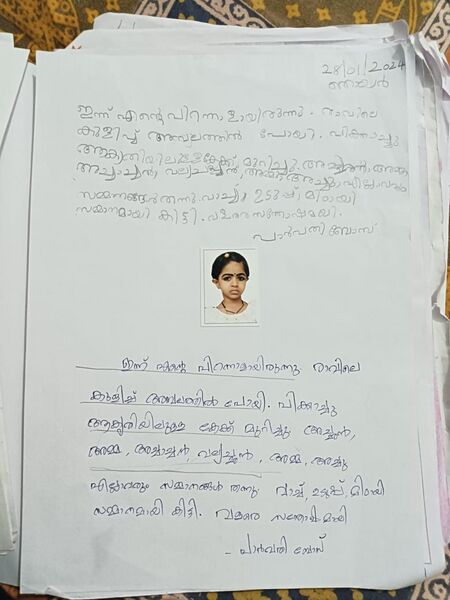 28/01/2024
ഞായർ
ഇന്ന് എന്റെ പിറന്നാളായിരുന്നു. രാവിലെ
കുളിച്ച് അമ്പലത്തിൽ പോയി. പിക്കാച്ചു
ആകൃതിയിലുള്ള കേക്ക് മുറിച്ചു. അച്ഛൻ, അമ്മ
അച്ചാച്ചൻ, വല്യച്ഛൻ, അമ്മ, അച്ചു എല്ലാവരും
സമ്മനങ്ങൾ തന്നു. വാച്ച്, ഉടുപ്പ്, മിഠായി
സമ്മാനമായി കിട്ടി. വളരെ സന്തോഷമായി.
പാർവതി ബോസ്
ഇന്ന് എന്റെ പിറന്നാളായിരുന്നു രാവിലെ
കുളിച്ച് അമ്പലത്തിൽ പോയി. പിക്കാച്ചു
ആകൃതിയിലുള്ള കേക്ക് മുറിച്ചു അച്ഛൻ,
അമ്മ, അച്ചാച്ചൻ, വല്യച്ഛൻ, അമ്മ, അച്ചു
എല്ലാവരും സമ്മാനങ്ങൾ തന്നു വാച്ച്, ഉടുപ്പ്, മിഠായി
സമ്മാനമായി കിട്ടി. വളരെ സന്തോഷമായി
- പാർവതി ബോസ്